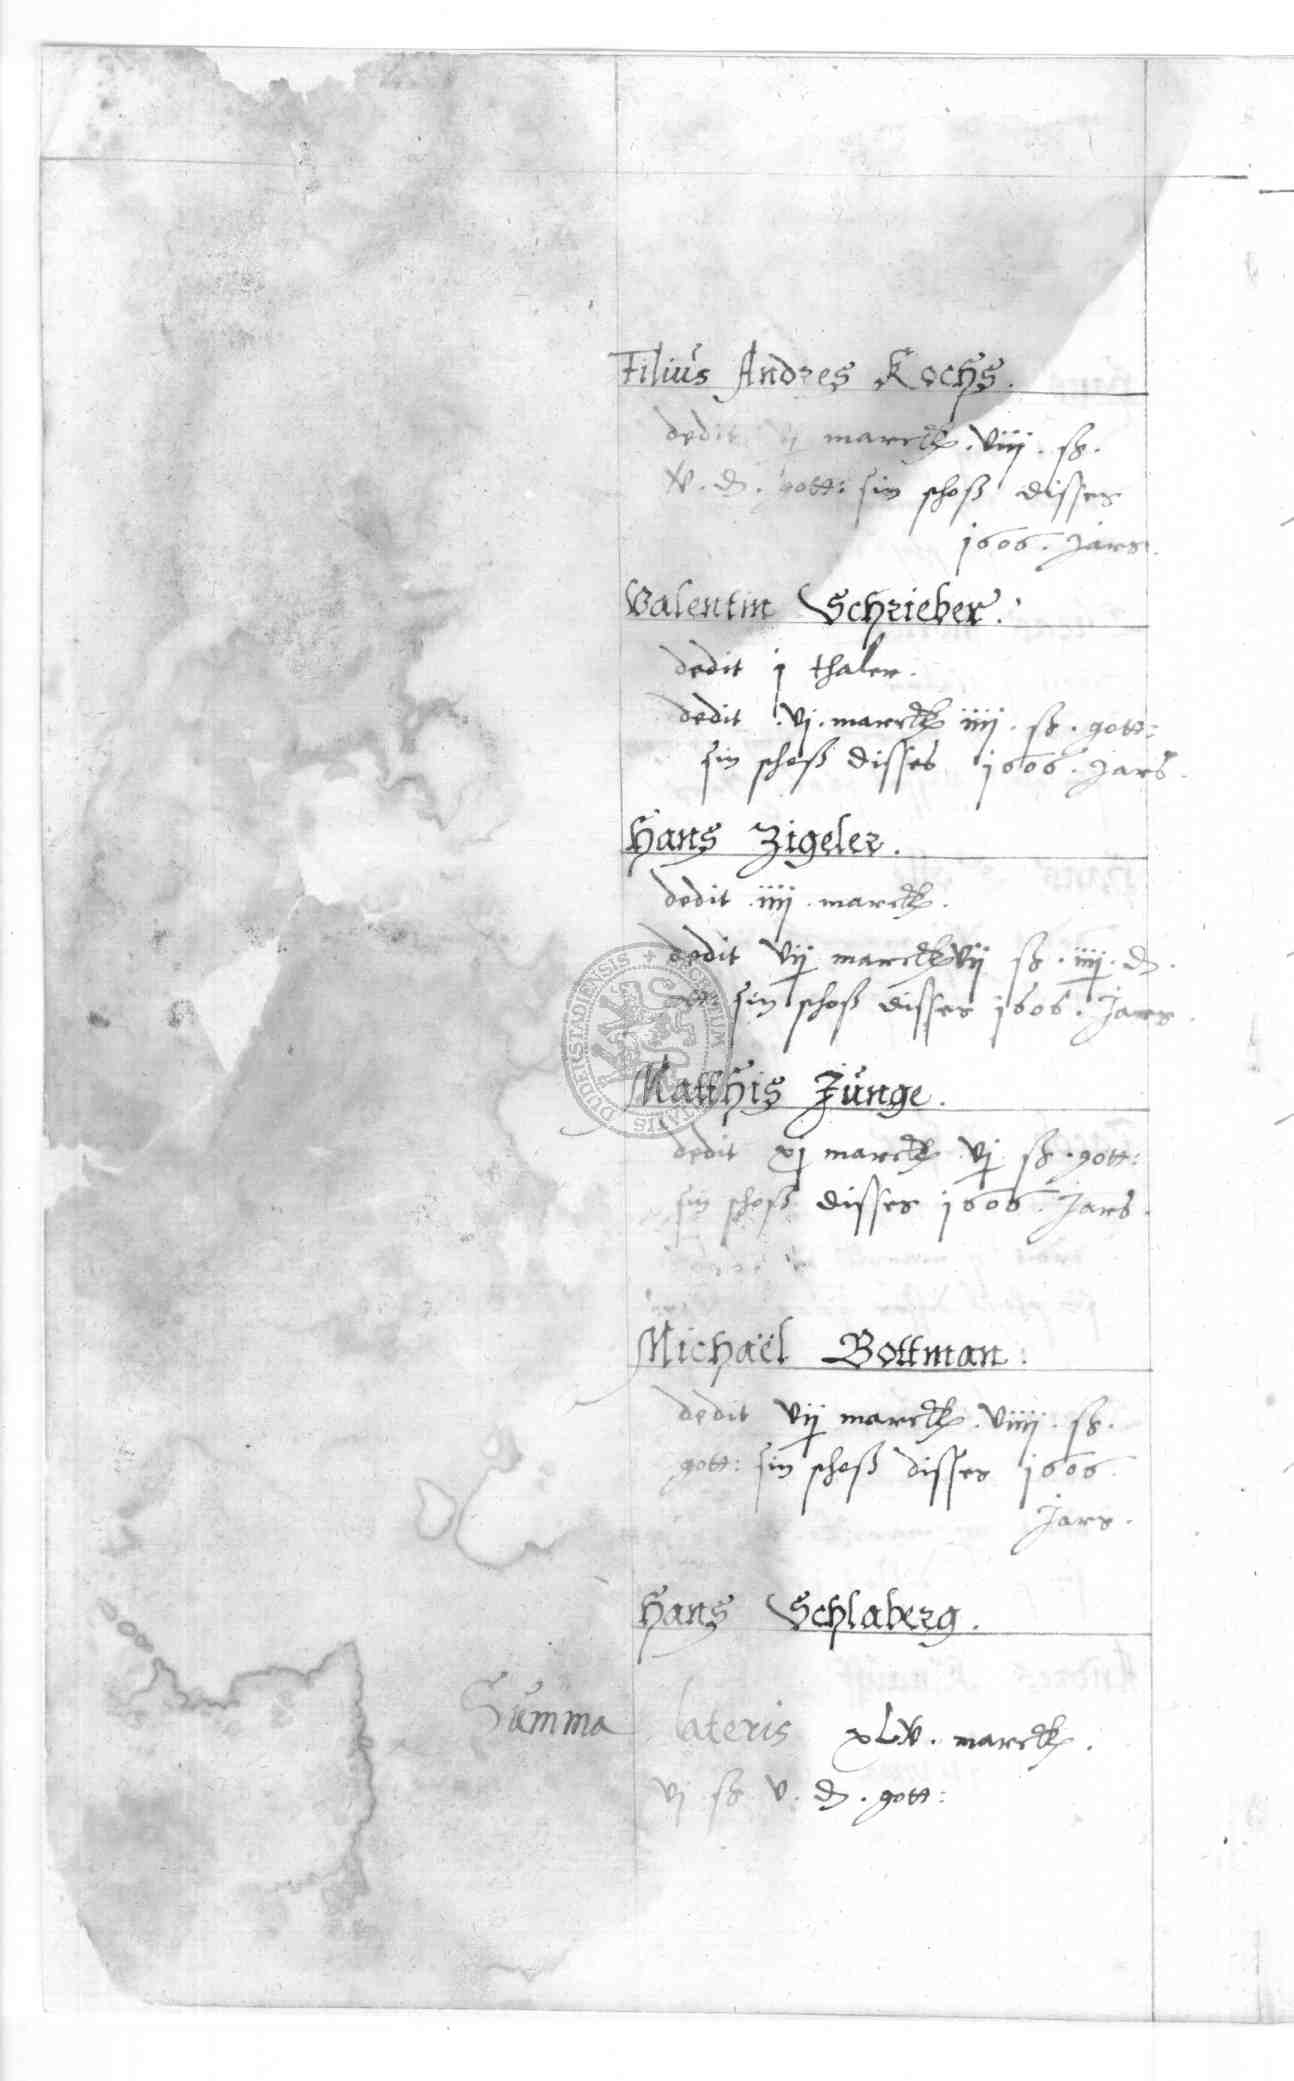 Filius Andres Kochs.
dedit ij marck. viij. ß.
v. d. gott: sin schoß disses
1606. Jars.
Valentin Schrieber.
dedit j thaler.
dedit vj. marck iiij. ß. gott:
sin schoß disses 1606. Jars.
Hans Zigeler.
dedit iiij marck.
dedit vij marck vij ß. iiij. d.
sin schoß disses 1606. Jars.
Matthis Junge.
dedit xj marck vj ß. gott:
sin schoß disses 1606. Jars.
Michaël Bottman.
dedit vij marck. viiij. ß.
gott: sin schoß disses 1606.
Jars.
Hans Schlaberg.
Summa lateris xLv. marck.
vj ß v. d. gott: